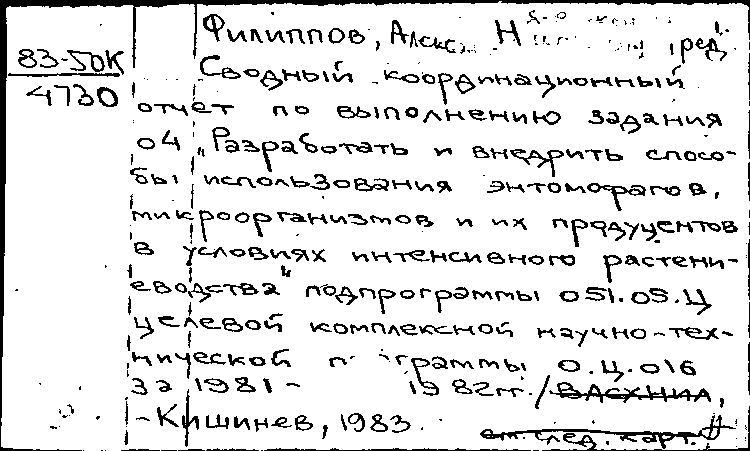 Филиппов, Алекс
83-50К
4730
Сводный координационный
отчет по выполнению задания
04 „Разработать и внедрить спосо-
бы использования энтомофагов,
микроорганизмов и их продуцентов
в условиях интенсивного растени-
еводства" подпрограммы 051.05.Ц
целевой комплексной научно-тех-
нической граммы 0.Ц.016
за 1981- 1982гг. / ВАСХНИЛ,
-Кишинев, 1983.
см. след. карт.